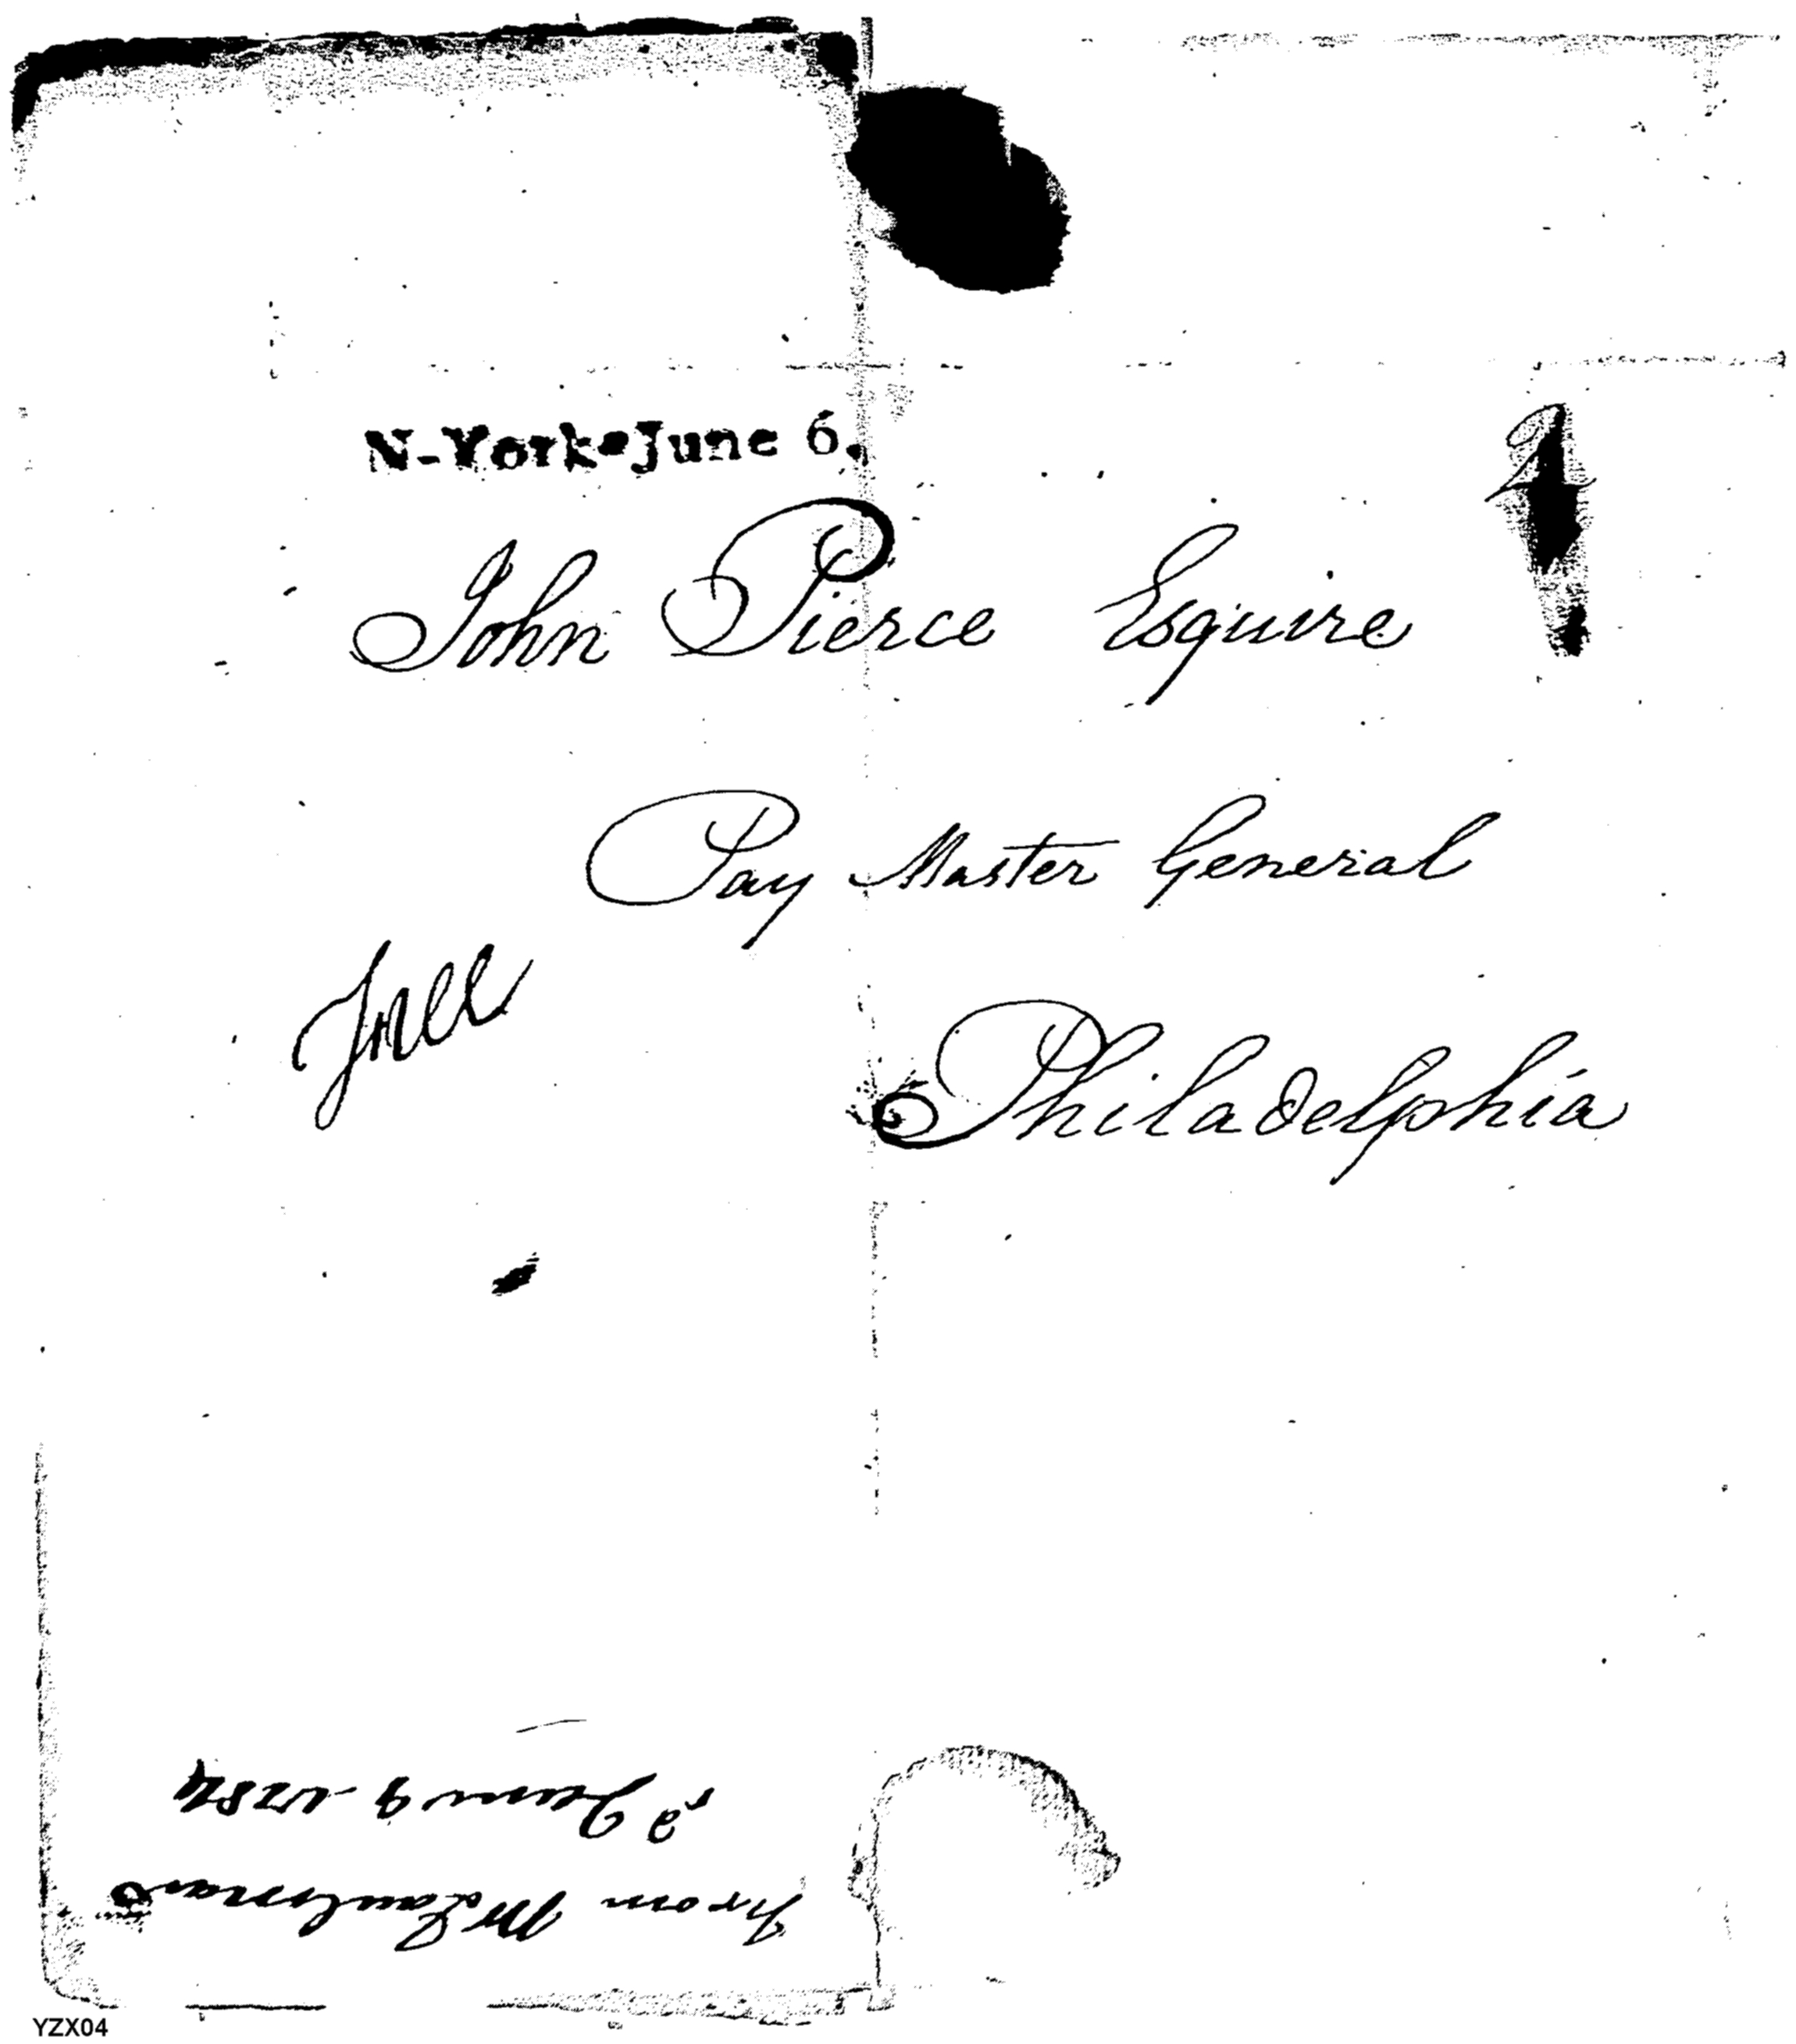 N-York•June 6.
John Pierce Esquire
Pay Master General
Free
Philadelphia
From Mr
June 9 1784
YZX04